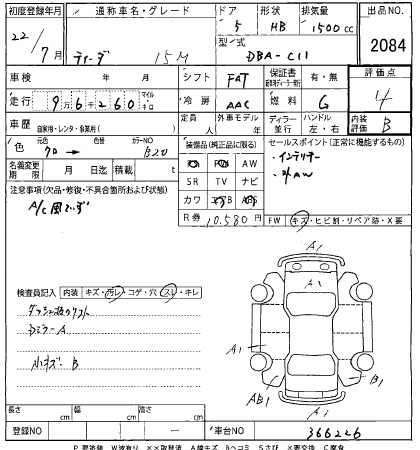 初度登録年月 通称車名・グレード ドア 形状 排気量 出品NO
22/7月 ティーダ 15M 5 HB 1500cc 2084
型式 DBA-C11
車検 年 月 シフト FAT 保証書 有・無 評価点
走行 9万6千260 マイル キロ 冷房 AAC 燃料 G 4
車歴 自家用・レンタ・事業用( ) 定員 人 外車モデル 年 ディーラー 並行 ハンドル 左・右 内装評価 B
色 クロ 元色 色替 カラーNO B20 装備品(純正品に限る) セールスポイント(正常に機能するもの)
名義変更期限 月 日迄 積載 t
AW ・インテリキー
SR TV ナビ ・社AW
注意事項(欠品・修復・不具合箇所および状態) カワ
A/C風でず R券 10,580円
FW キズ・ヒビ割・リペア跡・X要
検査員記入 内装 キズ・汚レ・コゲ・穴・スレ・キレ
A1
A1
ドミラーA
A1
小キズ・B
AB1 B1
A1
長さ cm 幅 cm 高さ cm
登録NO 車台NO 366226
P 要塗装 W波有り ××取替済 A線キズ Bヘコミ Sサビ ×要交換 C腐食